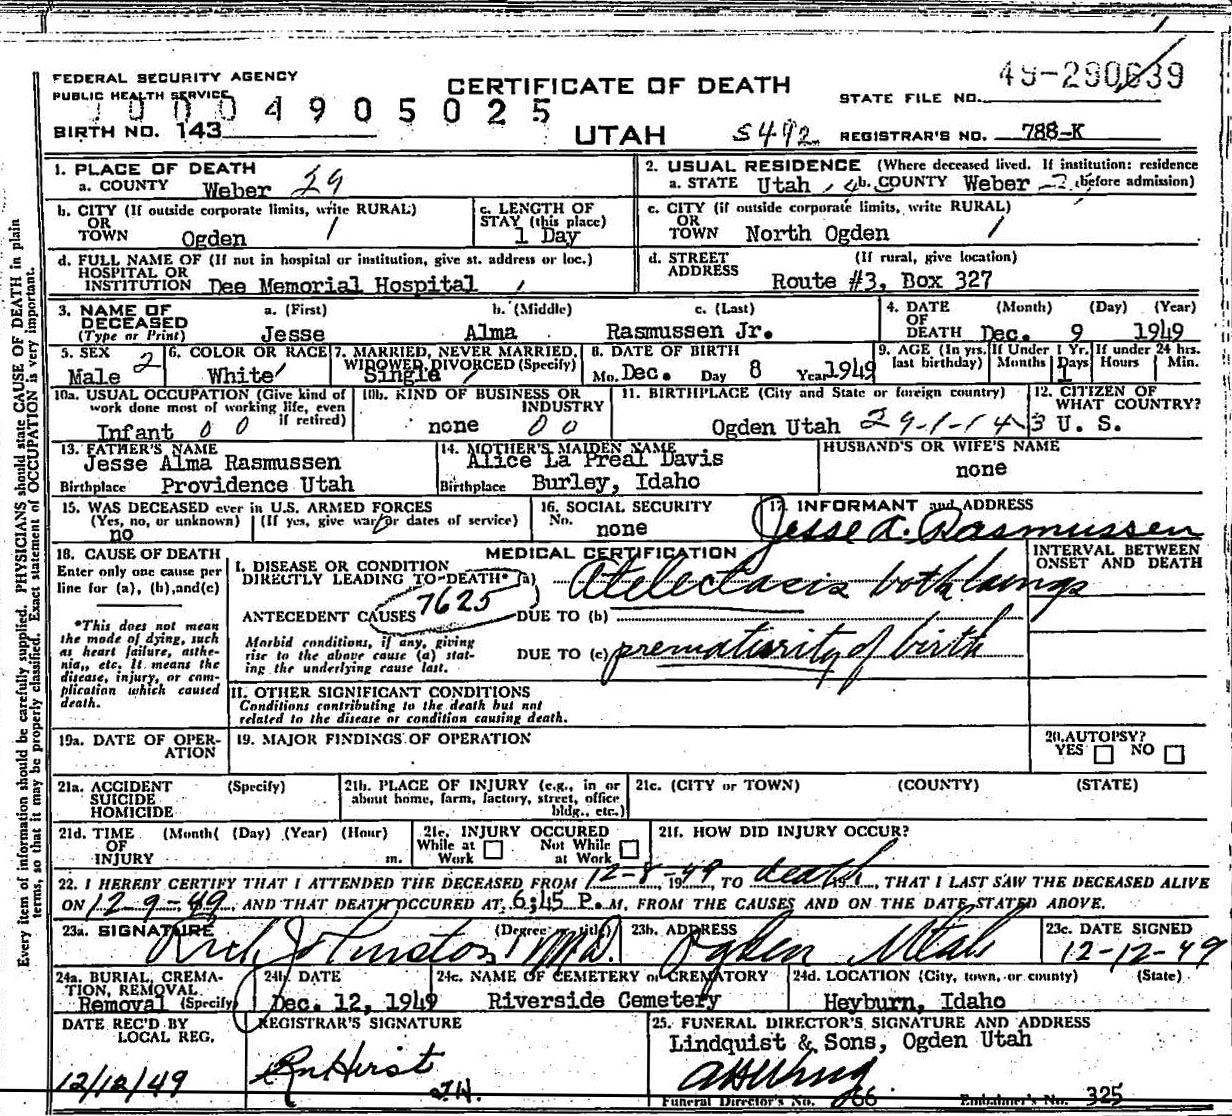 FEDERAL SECURITY AGENCY
PUBLIC HEALTH SERVICE
CERTIFICATE OF DEATH
STATE FILE NO. 49-290639
1 0 0 0 4 9 0 5 0 2 5
BIRTH NO. 143
UTAH
S492
REGISTRAR'S NO. 788-K
1. PLACE OF DEATH
a. COUNTY Weber 29
2. USUAL RESIDENCE (Where deceased lived. If institution: residence
a. STATE Utah b. COUNTY Weber before admission)
b. CITY (If outside corporate limits, write RURAL)
OR
TOWN Ogden 1
c. LENGTH OF
STAY (this place)
1 Day
c. CITY (if outside corporate limits, write RURAL)
OR
TOWN North Ogden 1
d. FULL NAME OF (If not in hospital or institution, give st. address or loc.)
HOSPITAL OR
INSTITUTION Dee Memorial Hospital
d. STREET (If rural, give location)
ADDRESS Route #3, Box 327
3. NAME OF DECEASED (Type or Print)
a. (First) b. (Middle) c. (Last)
Jesse Alma Rasmussen Jr.
4. DATE OF DEATH (Month) (Day) (Year)
Dec. 9 1949
5. SEX
Male 2
6. COLOR OR RACE
White
7. MARRIED, NEVER MARRIED,
WIDOWED, DIVORCED (Specify)
Single
8. DATE OF BIRTH
Mo. Dec. Day 8 Year 1949
9. AGE (In yrs. last birthday)
If Under 1 Yr. Months Days 1
If under 24 hrs. Hours Min.
10a. USUAL OCCUPATION (Give kind of
work done most of working life, even
if retired)
Infant 0 0
10b. KIND OF BUSINESS OR
INDUSTRY
none 0 0
11. BIRTHPLACE (City and State or foreign country)
Ogden Utah 29-1-143
12. CITIZEN OF
WHAT COUNTRY?
U. S.
13. FATHER'S NAME
Jesse Alma Rasmussen
Birthplace Providence Utah
14. MOTHER'S MAIDEN NAME
Alice La Preal Davis
Birthplace Burley, Idaho
HUSBAND'S OR WIFE'S NAME
none
15. WAS DECEASED ever in U.S. ARMED FORCES
(Yes, no, or unknown) (If yes, give war or dates of service)
no
16. SOCIAL SECURITY
No. none
17. INFORMANT and ADDRESS
Jesse A. Rasmussen
18. CAUSE OF DEATH
Enter only one cause per
line for (a), (b), and (c)
*This does not mean
the mode of dying, such
as heart failure, asthe-
nia, etc. It means the
disease, injury, or com-
plication which caused
death.
MEDICAL CERTIFICATION
I. DISEASE OR CONDITION
DIRECTLY LEADING TO DEATH* (a) Atelectasis both lungs
ANTECEDENT CAUSES 7625 DUE TO (b)
Morbid conditions, if any, giving
rise to the above cause (a) stat-
ing the underlying cause last.
DUE TO (c) prematurity of birth
INTERVAL BETWEEN
ONSET AND DEATH
II. OTHER SIGNIFICANT CONDITIONS
Conditions contributing to the death but not
related to the disease or condition causing death.
19a. DATE OF OPER-
ATION
19. MAJOR FINDINGS OF OPERATION
20. AUTOPSY?
YES NO
21a. ACCIDENT (Specify)
SUICIDE
HOMICIDE
21b. PLACE OF INJURY (e.g., in or
about home, farm, factory, street, office
bldg., etc.)
21c. (CITY or TOWN) (COUNTY) (STATE)
21d. TIME (Month( (Day) (Year) (Hour)
OF
INJURY m.
21e. INJURY OCCURED
While at Work Not While at Work
21f. HOW DID INJURY OCCUR?
22. I HEREBY CERTIFY THAT I ATTENDED THE DECEASED FROM 12-8-49, 19 TO death 19, THAT I LAST SAW THE DECEASED ALIVE
ON 12-9-49, AND THAT DEATH OCCURED AT 6:45 P.M, FROM THE CAUSES AND ON THE DATE STATED ABOVE.
23a. SIGNATURE (Degree or title)
Johnston M.D.
23b. ADDRESS
Ogden Utah
23c. DATE SIGNED
12-12-49
24a. BURIAL, CREMA-
TION, REMOVAL
Removal (Specify)
24b. DATE
Dec. 12, 1949
24c. NAME OF CEMETERY or CREMATORY
Riverside Cemetery
24d. LOCATION (City, town, or county) (State)
Heyburn, Idaho
DATE REC'D BY
LOCAL REG.
12/12/49
REGISTRAR'S SIGNATURE
25. FUNERAL DIRECTOR'S SIGNATURE AND ADDRESS
Lindquist & Sons, Ogden Utah
Funeral Director's No. 266 Embalmer's No. 325
Every item of information should be carefully supplied. PHYSICIANS should state CAUSE OF DEATH in plain
terms, so that it may be properly classified. Exact statement of OCCUPATION is very important.